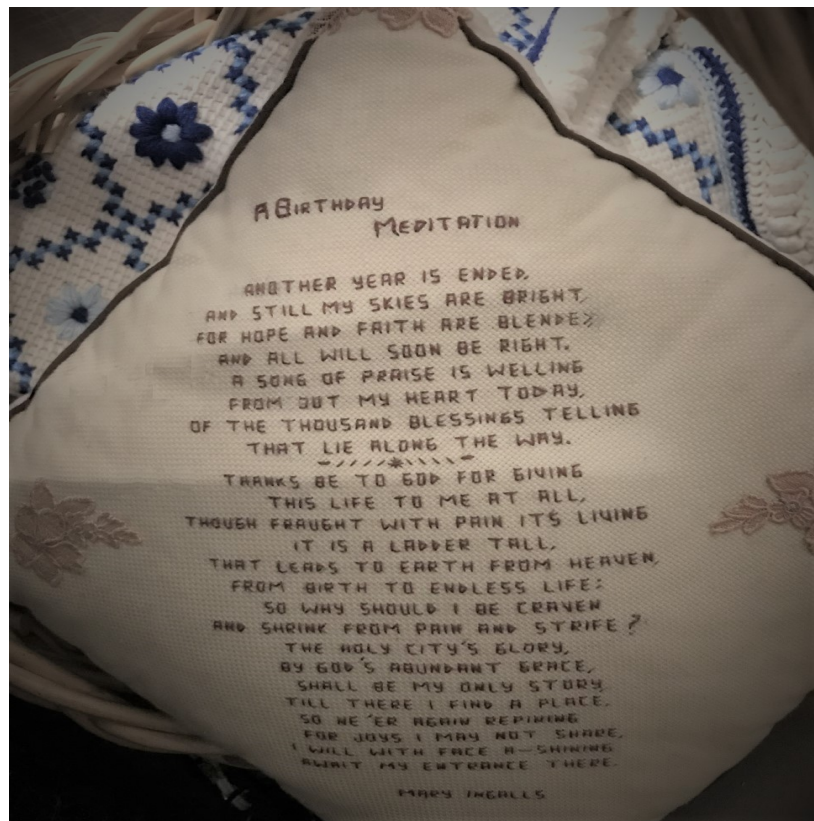 A BIRTHDAY
MEDITATION
ANOTHER YEAR IS ENDED,
AND STILL MY SKIES ARE BRIGHT,
FOR HOPE AND FAITH ARE BLENDED
AND ALL WILL SOON BE RIGHT.
A SONG OF PRAISE IS WELLING
FROM OUT MY HEART TODAY,
OF THE THOUSAND BLESSINGS TELLING
THAT LIE ALONG THE WAY.
THANKS BE TO GOD FOR GIVING
THIS LIFE TO ME AT ALL,
THOUGH FRAUGHT WITH PAIN IT'S LIVING
IT IS A LADDER TALL,
THAT LEADS TO EARTH FROM HEAVEN,
FROM BIRTH TO ENDLESS LIFE:
SO WHY SHOULD I BE CRAVEN
AND SHRINK FROM PAIN AND STRIFE?
THE HOLY CITY'S GLORY,
BY GOD'S ABUNDANT GRACE,
SHALL BE MY ONLY STORY
TILL THERE I FIND A PLACE.
SO NE'ER AGAIN REPINING
FOR JOYS I MAY NOT SHARE,
I WILL WITH FACE A-SHINING
AWAIT MY ENTRANCE THERE.
MARY INGALLS